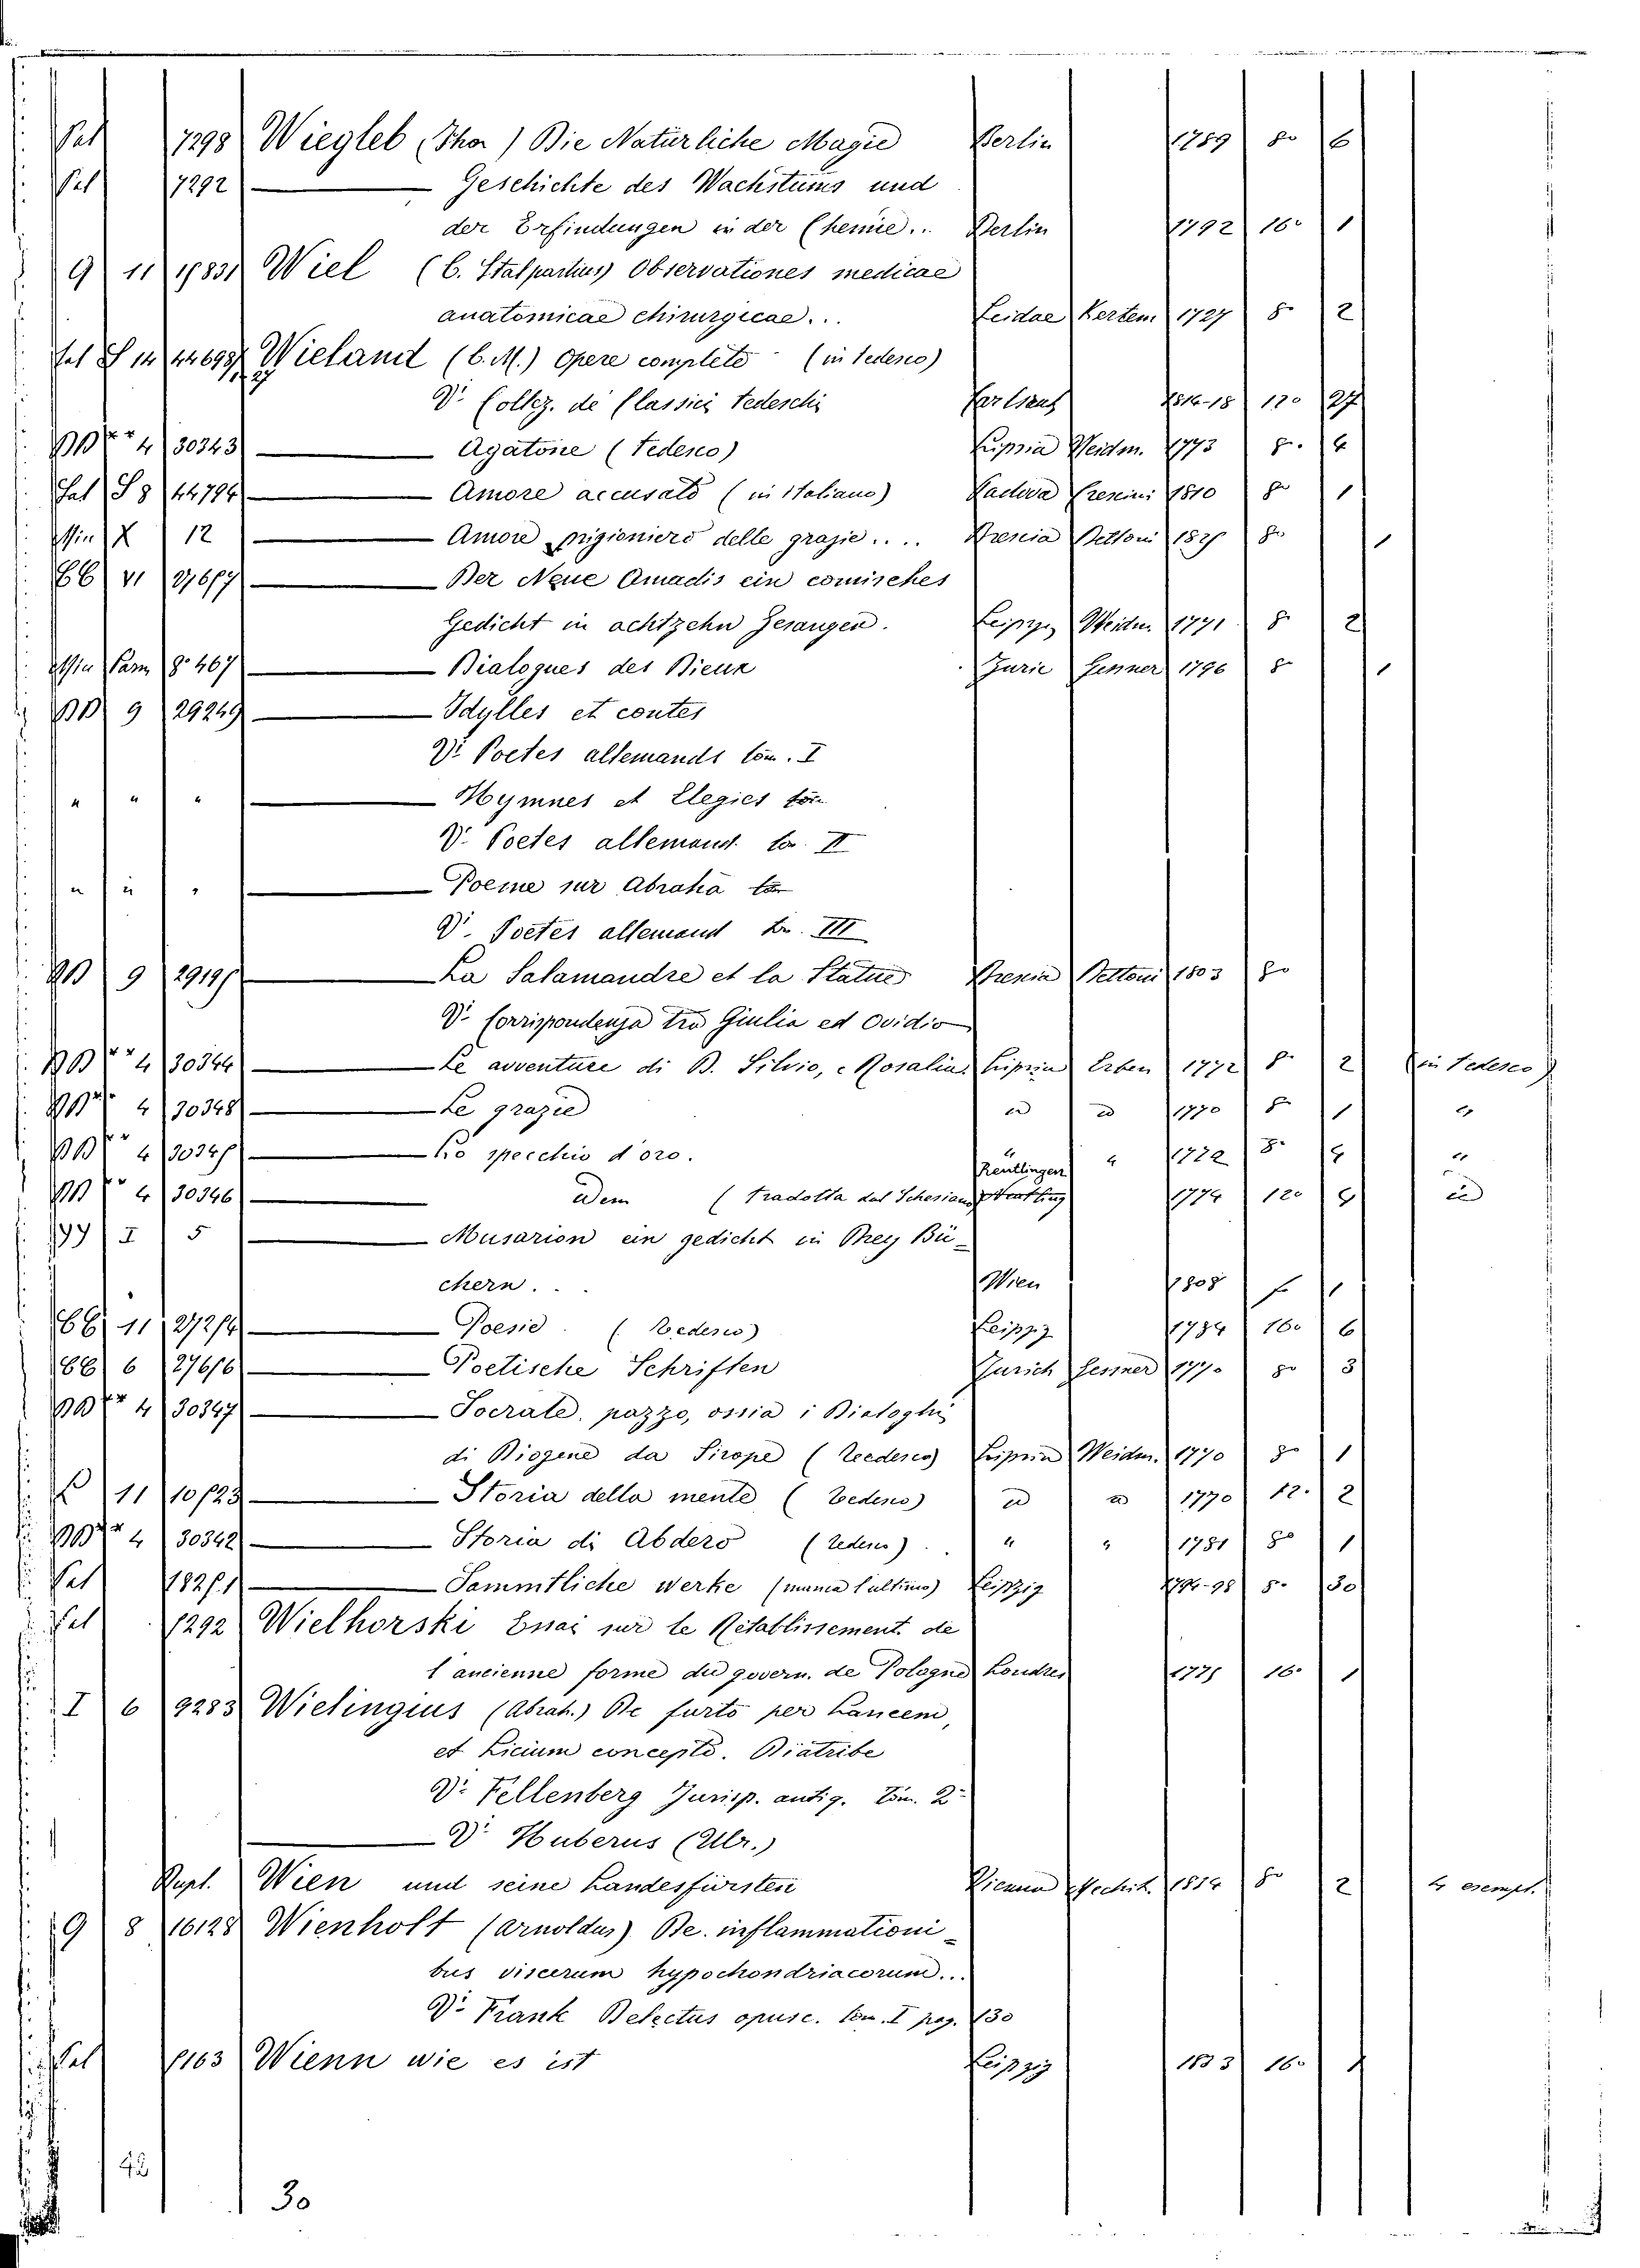 7298 Wiegleb (Tho ) Die Natürliche Magie Berlin 1789 8o 6
7292 Geschichte des Wachstums und
der Erfindungen in der Chemie.. Berlin 1792 16o 1
9 11 Wiel (C. Stalpartius) Observationes medicae
anatomicae chirurgicae... Leidae 1727 8o 2
Wieland (C. M.) Opere complete (in tedesco)
Vi Collez. de Classici tedeschi 1816-18 12o 27
4 30343 Agatone (Tedesco) Weidm. 1773 8o 4
S 8 44794 Amore accusato (in Italiano) Padova 1810 8o 1
X 12 Amore prigioniero delle grazie.... Brescia Bettoni 8o 1
Der Neue Amadis ein comisches
Gedicht in achtzehn Gesangen. Leipzig Weidm. 1771 8o 2
467 Dialogues des Dieux Zuric Gessner 1796 8o 1
9 29249 Idylles et contes
Vi Poetes allemands tom. I
" " " Hymnes et Elegies tom
Vi Poetes allemand to. II
" " " Poeme sur Abraha tom
Vi. Poetes allemand to. III
9 La Salamandre et la Statue Brescia Bettoni 1803 8o
Vi Corrispondenza tra Giulia ed Ovidio
4 30344 Le avventure di D. Silvio, e Rosalia Lipsia Erben 1772 8o 2 (in Tedesco)
4 30348 Le grazie " " 1770 8o 1 "
4 Lo specchio d'oro. " " 1772 8o 4 "
4 30346 Idem (tradotta dal Schesian) Reutlingen 1774 12o 4 "
I 5 Musarion ein gedicht in Drey Bü-
chern. .. Wien 1808 1
11 Poesie. (Tedesco) Leipzig 1784 16o 6
6 Poetische Schriften Zurich Gessner 1770 8o 3
4 30347 Socrate pazzo, ossia i Dialoghi
di Diogene da Sinope (Tedesco) Lipsia Weidm. 1770 8o 1
11 Storia della mente (Tedesco) " " 1770 12o 2
4 30342 Storia di Abdero (tedesco).. " " 1781 8o 1
Sammtliche Werke (manca l'ultimo) Leipzig 1794-98 8o 30
1292 Wielhorski Essai sur le Rétablissement de
l'ancienne forme du govern. de Pologne Londres 1775 16o 1
I 6 9283 Wielingius (Abrah.) De furto per Lancem,
et Licium concepto. Diatribe
Vi Fellenberg Jurisp. antiq. tom. 2o
Vi Huberus (Ulr.)
Wien und seine Landesfürsten Vienna Mechit. 1814 8o 2 4 esempl.
9 8 16128 Wienholt (Arnoldus) De inflammationi-
bus viscerum hypochondriacorum...
Vi Frank Delectus opusc. tom. I pag. 130
Wienn wie es ist Leipzig 1833 16o 1
42
30